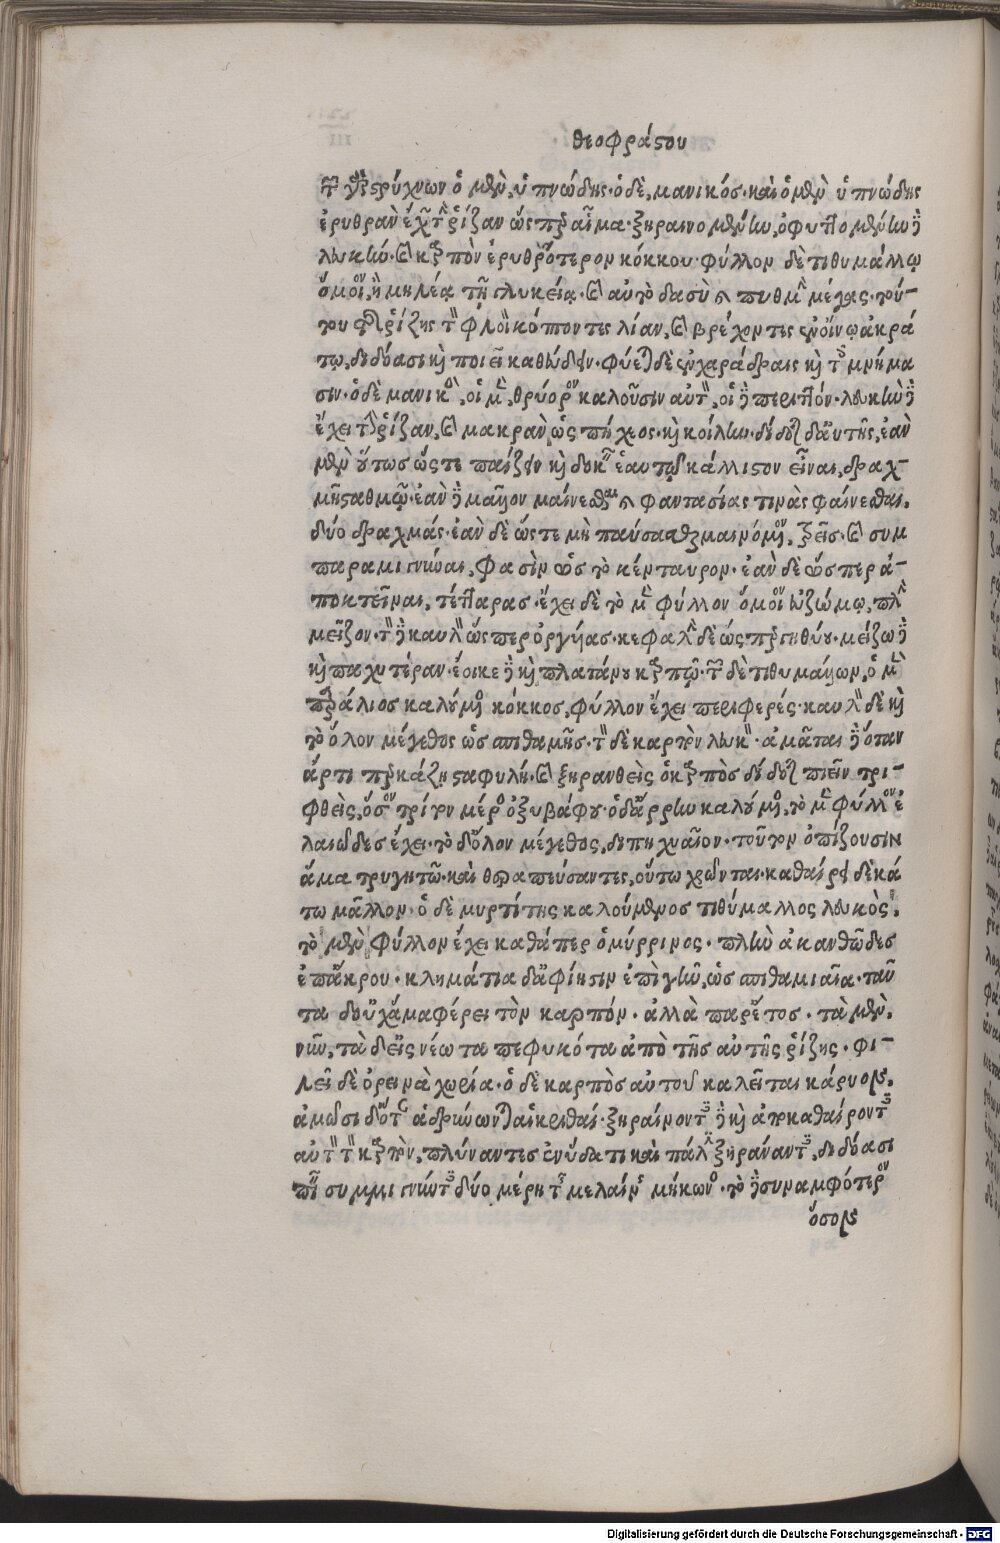 θεοφράστου
τῶν δὲ στρύχνων ὁ μὲν, ὑπνώδης· ὁ δὲ, μανικός· καὶ ὁ μὲν ὑπνώδης
ἐρυθρὰν ἔχων τὴν ῥίζαν ὥσπερ αἷμα· ξηραινομένην, ὀρυττομένην δὲ
λευκήν· καὶ καρπὸν ἐρυθρότερον κόκκου· φύλλον δὲ τιθυμάλλῳ
ὅμοιον, ἢ μηλέᾳ τῇ γλυκείᾳ· καὶ αὐτὸ δασὺ καὶ πυθμὴν μέγας· τού-
του τῆς ῥίζης τὸν φλοιὸν κόπτοντες λίαν, καὶ βρέχοντες ἐν οἴνῳ ἀκρά
τῳ, διδόασι καὶ ποιεῖ καθεύδειν· φύεται δὲ ἐν χαράδραις καὶ τοῖς μνήμα
σιν· ὁ δὲ μανικὸς, οἱ μὲν, θρύορον καλοῦσιν αὐτὸν, οἱ δὲ περιττόν· λευκὴν δὲ
ἔχει τὴν ῥίζαν, καὶ μακρὰν ὡς πήχεος· καὶ κοίλην· δίδοται δ' αὐτῆς, ἐὰν
μὲν οὕτως ὥστε παίζειν καὶ δοκεῖν ἑαυτῷ κάλλιστον εἶναι, δραχ-
μῆς σταθμῷ· ἐὰν δὲ μᾶλλον μαίνεσθαι καὶ φαντασίας τινὰς φαίνεσθαι,
δύο δραχμάς· ἐὰν δὲ ὥστε μὴ παύσασθαι μαινόμενον, τρεῖς· καὶ συμ
παραμιγνύναι, φασὶν ὀπὸς τὸ κένταυρον· ἐὰν δὲ ὥσπερ ἀ-
ποκτεῖναι, τέτταρας· ἔχει δὲ τὸ μὲν φύλλον ὅμοιον εὐζώμῳ, πλὴν
μεῖζον· τὸν δὲ καυλὸν ὥσπερ ὀργήας· κεφαλὴν δὲ ὥσπερ γηθύου· μείζω δὲ
καὶ παχυτέραν· ἔοικε δὲ καὶ πλατάνου καρπῷ· τῶν δὲ τιθυμάλλων, ὁ μὲν
παράλιος καλούμενος κόκκος, φύλλον ἔχει περιφερές· καυλὸν δὲ καὶ
τὸ ὅλον μέγεθος ὡς σπιθαμῆς· τὸν δὲ καρπὸν λευκὸν· ἀμᾶται δὲ ὅταν
ἄρτι περκάζῃ σταφυλή· καὶ ξηρανθεὶς ὁ καρπὸς δίδοται πιεῖν τρι-
φθεὶς, ὅσον τρίτον μέρος ὀξυβάφου· ὁ δ' ἄρρην καλούμενος, τὸ μὲν φύλλον ἐ
λαιῶδες ἔχει· τὸ δ' ὅλον μέγεθος, διπηχυαῖον· τοῦτον ὀπίζουσιν
ἅμα τρυγητῷ· καὶ θεραπεύσαντες, οὕτω χρῶνται· καθαίρει δὲ κά
τω μᾶλλον· ὁ δὲ μυρτίτης καλούμενος τιθύμαλλος λευκὸς·
τὸ μὲν φύλλον ἔχει καθάπερ ὁ μύρρινος· πλὴν ἀκανθῶδες
ἐπ' ἄκρου· κλημάτια δ' ἀφίησιν ἐπὶ γῆν, ὡς σπιθαμιαῖα· ταῦ
τα δ' οὐχ ἅμα φέρει τὸν καρπόν· ἀλλὰ παρ' ἔτος· τὰ μὲν,
νῦν, τὰ δ' εἰς νέωτα πεφυκότα ἀπὸ τῆς αὐτῆς ῥίζης· φι-
λεῖ δὲ ὀρεινὰ χωρία· ὁ δὲ καρπὸς αὐτοῦ καλεῖται κάρυον.
ἀμῶσι δ' ὅταν ἁδρύνωνται αἱ κριθαί· ξηραίνοντες δὲ καὶ ἀποκαθαίροντες
αὐτὸν τὸν καρπὸν, πλύναντες ἐν ὕδατι καὶ πάλιν ξηράναντες, διδόασι
πιεῖν συμμιγνύντες δύο μέρη τῆς μελαίνης μήκωνος· τὸ δὲ συναμφότερον
ὅσον
Digitalisierung gefördert durch die Deutsche Forschungsgemeinschaft - DFG